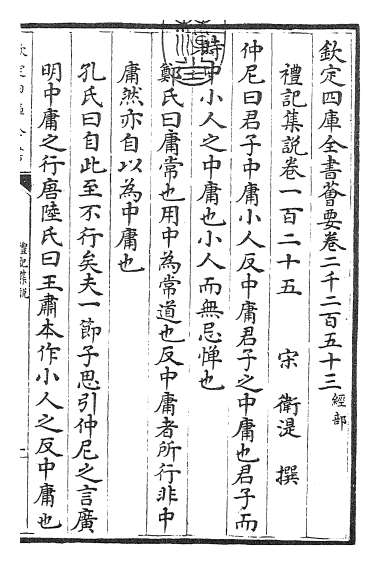 欽定四庫全書薈要卷二千二百五十三經部
禮記集說卷一百二十五 宋 衛湜 撰
仲尼曰君子中庸小人反中庸君子之中庸也君子而
時中小人之中庸也小人而無忌憚也
鄭氏曰庸常也用中為常道也反中庸者所行非中
庸然亦自以為中庸也
孔氏曰自此至不行矣夫一節子思引仲尼之言廣
明中庸之行唐陸氏曰王肅本作小人之反中庸也
禮記集說